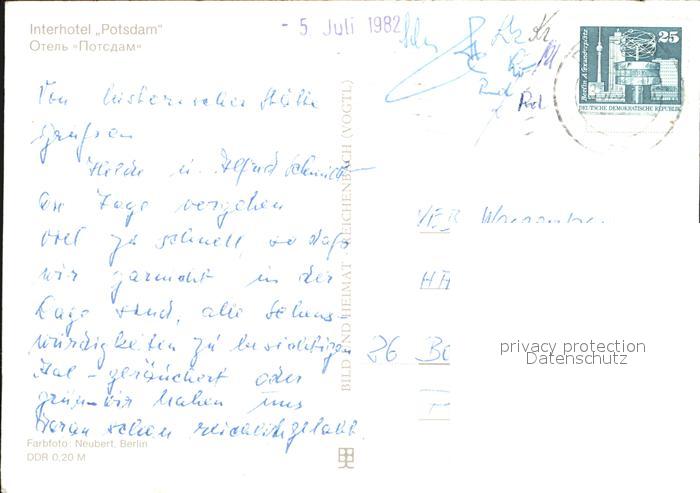 Interhotel „Potsdam“
Отель «Потсдам»
- 5. Juli 1982
25
Berlin Alexanderplatz
DEUTSCHE DEMOKRATISCHE REPUBLIK
Von historischer Stätte
grüßen
Heide u. Alfred Schmidt
Die Tage vergehen
viel zu schnell, so daß
wir garnicht in der
Lage sind, alle Sehens-
würdigkeiten zu besichtigen
Aal - geräuchert oder
grün - wir haben uns
daran schon reichlich gelabt.
BILD UND HEIMAT · REICHENBACH (VOGTL)
VEB
26
privacy protection
Datenschutz
Farbfoto: Neubert, Berlin
DDR 0,20 M